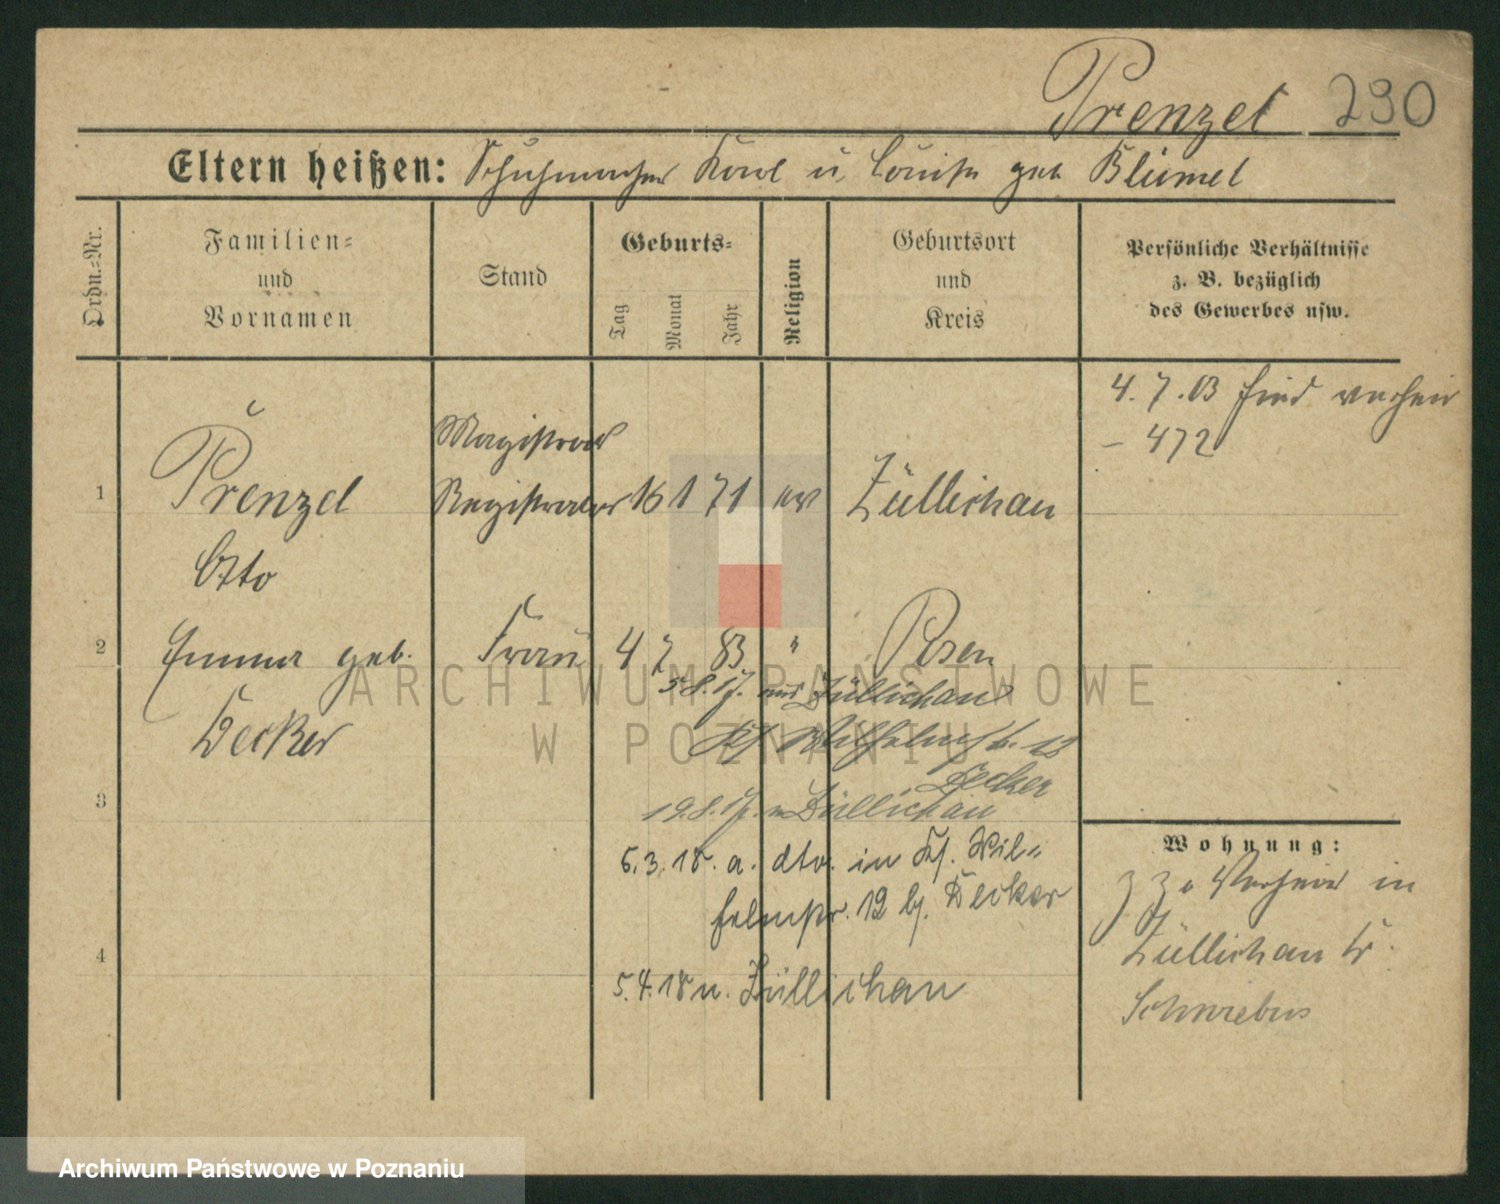 Prenzel 290
Eltern heißen: Schuhmacher Karl u. Louise geb Blümel
Ordn.-Nr.
Familien-
und
Vornamen
Stand
Geburts-
Tag
Monat
Jahr
Religion
Geburtsort
und
Kreis
Persönliche Verhältnisse
z. B. bezüglich
des Gewerbes usw.
4. 7. 03 sind verheir
- 472
1 Prenzel Magistrat
Registrator 16 1 71 ev Züllichau
Otto
2 Emma geb. Frau 4 7 83 " Posen
Decker
5.8.17. aus Züllichau
Wilhelmstr. 12
Decker
3
19.8.17. n Züllichau
6.3.18. a. dto. in Kf. Wil-
helmstr. 12 bj. Decker
4
5.4.18 n. Züllichau
Wohnung:
z. Verheir in
Züllichau Kr.
Schwiebus
ARCHIWUM PAŃSTWOWE
W POZNANIU
Archiwum Państwowe w Poznaniu